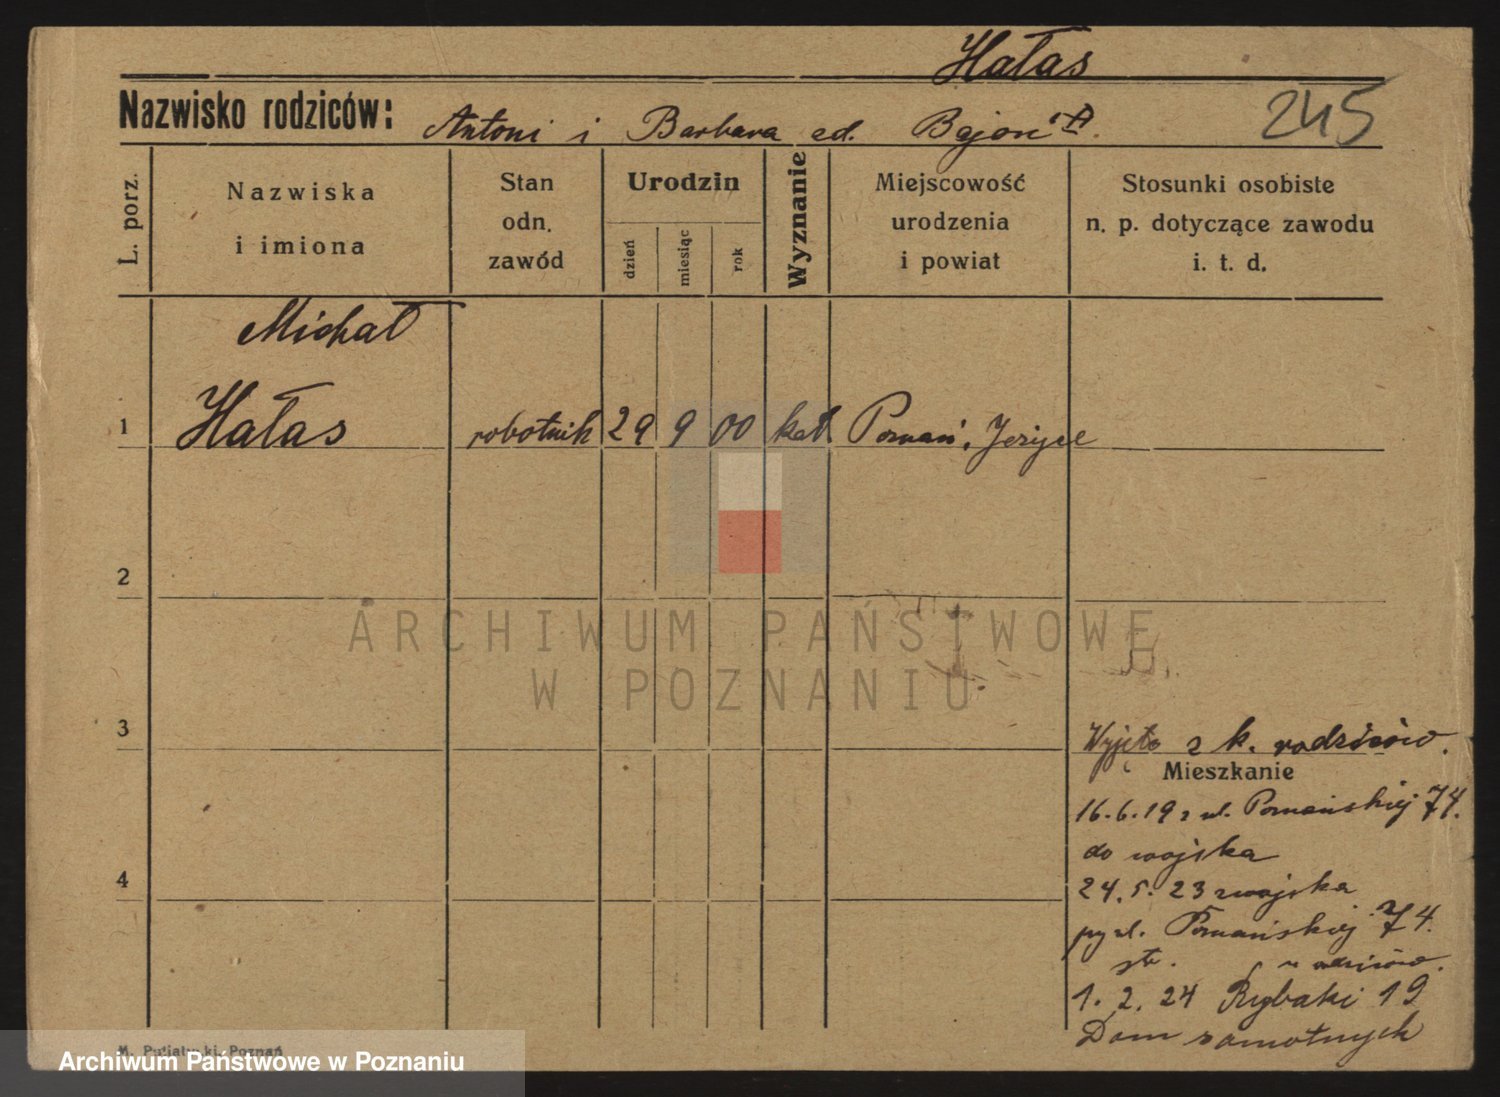 Hałas
Nazwisko rodziców: Antoni i Barbara ed. Bejon
245
L. porz.
Nazwiska
i imiona
Stan
odn.
zawód
Urodzin
dzień
miesiąc
rok
Wyznanie
Miejscowość
urodzenia
i powiat
Stosunki osobiste
n. p. dotyczące zawodu
i. t. d.
Michał
1 Hałas robotnik 29 9 00 kat. Poznań, Jeżyce
2
3
Wyjęto z k. rodziców.
Mieszkanie
16.6.19 z ul. Poznańskiej 74.
do wojska
4
24.5.23 z wojska
przy ul. Poznańskiej 74.
u rodziców.
1.2.24 Rybaki 19
Dom samotnych
ARCHIWUM PAŃSTWOWE
W POZNANIU
Poznań
Archiwum Państwowe w Poznaniu